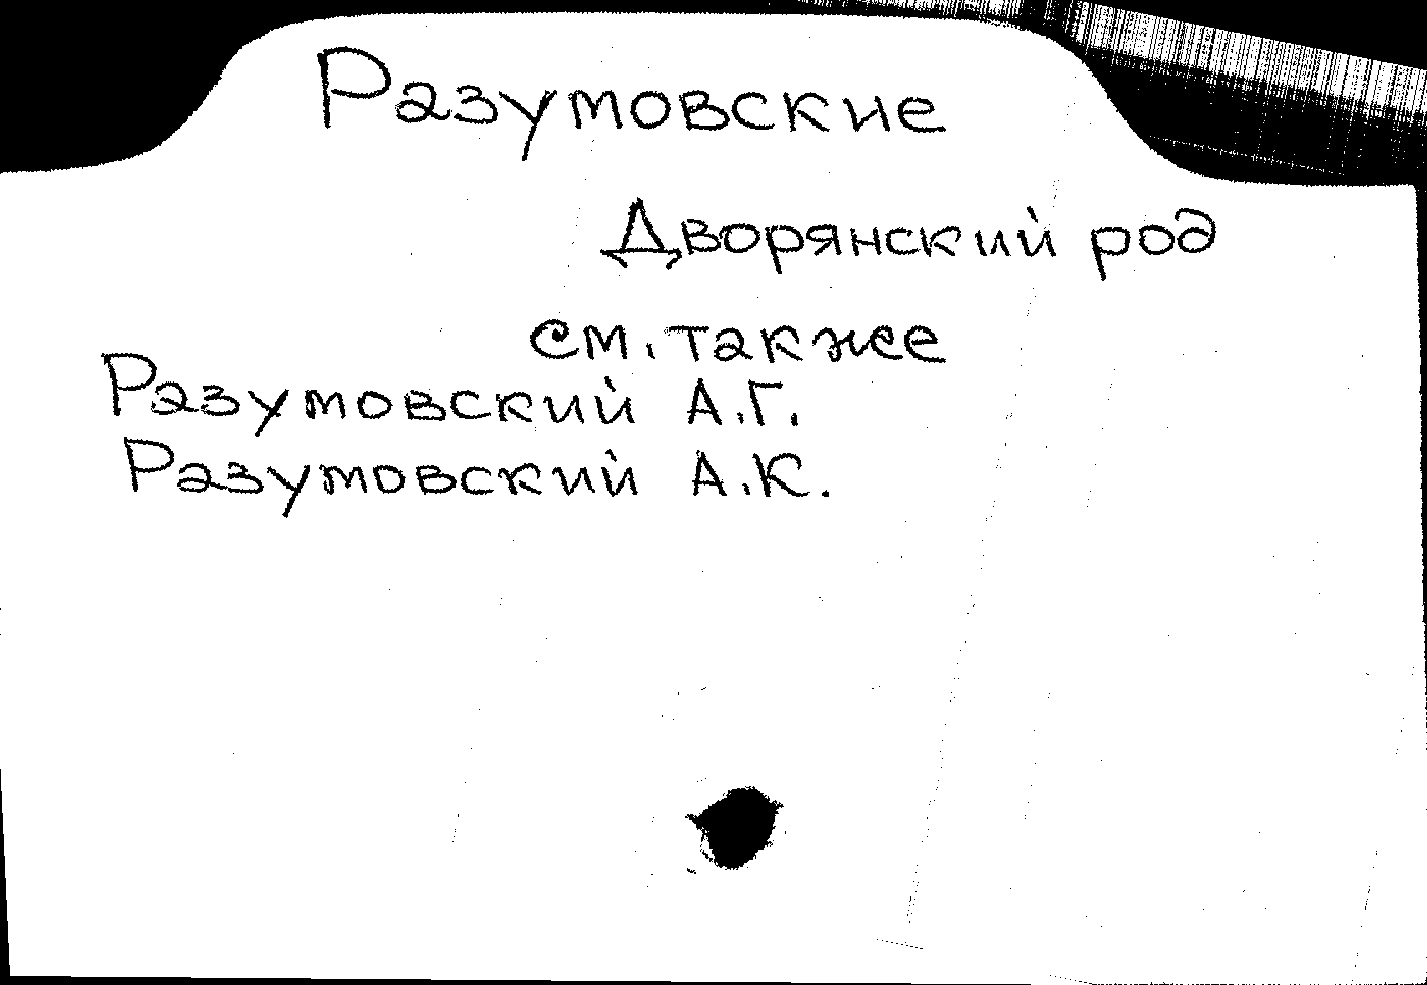 Разумовские
Дворянский род
см. также
Разумовский А.Г.
Разумовский А.К.